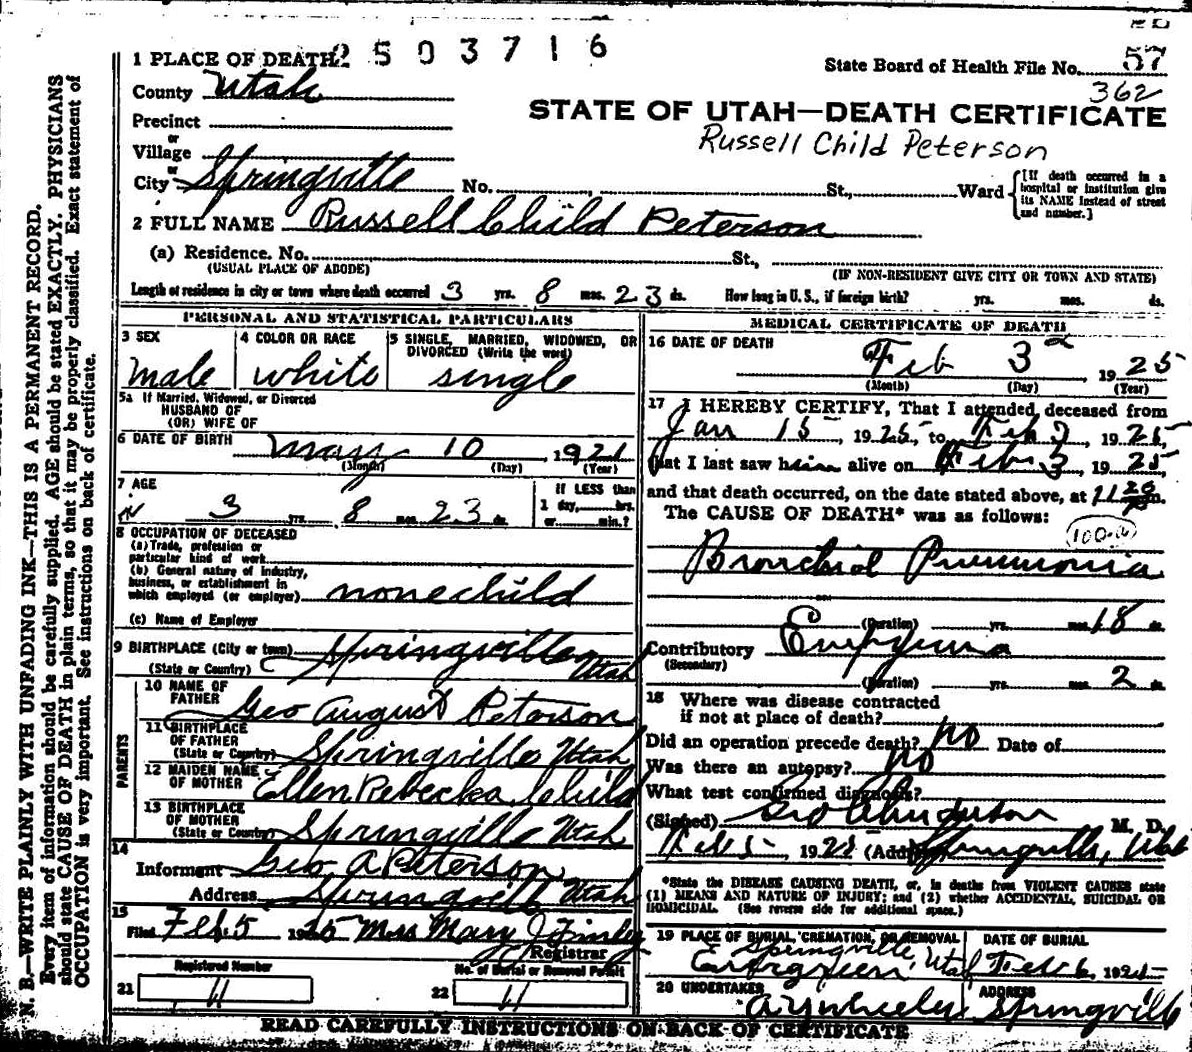 2503716
1 PLACE OF DEATH
State Board of Health File No. 57
362
County Utah
STATE OF UTAH—DEATH CERTIFICATE
Precinct
Russell Child Peterson
or
Village
or
City Springville No. St., Ward
[If death occurred in a hospital or institution give its NAME instead of street and number.]
2 FULL NAME Russell Child Peterson
(a) Residence. No. St.,
(USUAL PLACE OF ABODE) (IF NON-RESIDENT GIVE CITY OR TOWN AND STATE)
Length of residence in city or town where death occurred 3 yrs. 8 mos. 23 ds. How long in U. S., if foreign birth? yrs. mos. ds.
PERSONAL AND STATISTICAL PARTICULARS
3 SEX 4 COLOR OR RACE 5 SINGLE, MARRIED, WIDOWED, OR DIVORCED (Write the word)
Male white single
5a If Married, Widowed, or Divorced
HUSBAND OF
(OR) WIFE OF
6 DATE OF BIRTH May 10 1921
(Month) (Day) (Year)
7 AGE If LESS than
3 yrs. 8 mos. 23 ds. 1 day, hrs.
or min.?
8 OCCUPATION OF DECEASED
(a) Trade, profession or
particular kind of work
(b) General nature of industry,
business, or establishment in
which employed (or employer) none child
(c) Name of Employer
9 BIRTHPLACE (City or town) Springville
(State or Country) Utah
PARENTS
10 NAME OF
FATHER Geo August Peterson
11 BIRTHPLACE
OF FATHER
(State or Country) Springville Utah
12 MAIDEN NAME
OF MOTHER Ellen Rebecka Child
13 BIRTHPLACE
OF MOTHER
(State or Country) Springville Utah
14
Informant Geo. A Peterson
Address Springville Utah
15
Filed Feb 5 1925 Mrs Mary J Finley
Registrar
Registered Number No. of Burial or Removal Permit
21 11 22 11
MEDICAL CERTIFICATE OF DEATH
16 DATE OF DEATH
Feb 3 1925
(Month) (Day) (Year)
17 I HEREBY CERTIFY, That I attended deceased from
Jan 15, 1925, to Feb 3, 1925,
that I last saw him alive on Feb 3, 1925
and that death occurred, on the date stated above, at 11 20 m.
The CAUSE OF DEATH* was as follows:
Bronchial Pneumonia
(Duration) yrs. mos. 18 ds.
Contributory Empyema
(Secondary)
(Duration) yrs. mos. 2 ds.
18 Where was disease contracted
if not at place of death?
Did an operation precede death? no Date of
Was there an autopsy? no
What test confirmed diagnosis?
(Signed) Geo Anderson M. D.
Feb 5, 1925 (Address) Springville, Utah
*State the DISEASE CAUSING DEATH, or, in deaths from VIOLENT CAUSES state
(1) MEANS AND NATURE OF INJURY; and (2) whether ACCIDENTAL, SUICIDAL OR
HOMICIDAL. (See reverse side for additional space.)
19 PLACE OF BURIAL, CREMATION, OR REMOVAL DATE OF BURIAL
Springville, Utah
Evergreen Feb 6, 1925
20 UNDERTAKER ADDRESS
A Y Wheeler Springville
READ CAREFULLY INSTRUCTIONS ON BACK OF CERTIFICATE
N. B.—WRITE PLAINLY WITH UNFADING INK—THIS IS A PERMANENT RECORD.
Every item of information should be carefully supplied. AGE should be stated EXACTLY. PHYSICIANS
should state CAUSE OF DEATH in plain terms, so that it may be properly classified. Exact statement of
OCCUPATION is very important. See instructions on back of certificate.